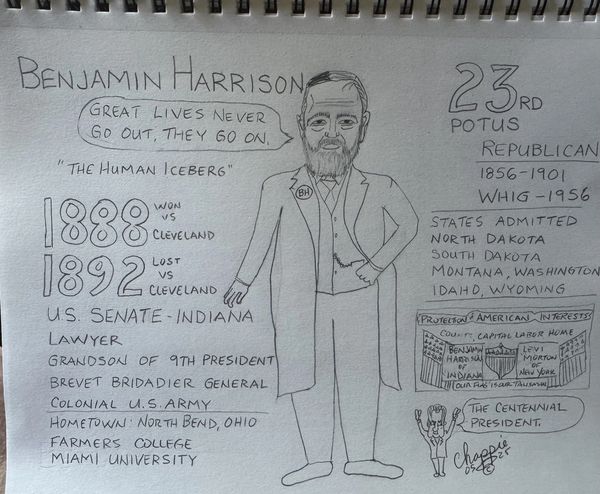 BENJAMIN HARRISON
GREAT LIVES NEVER
GO OUT, THEY GO ON.
"THE HUMAN ICEBERG"
1888 WON
VS
CLEVELAND
1892 LOST
VS
CLEVELAND
U.S. SENATE-INDIANA
LAWYER
GRANDSON OF 9TH PRESIDENT
BREVET BRIDADIER GENERAL
COLONIAL U.S. ARMY
HOMETOWN: NORTH BEND, OHIO
FARMERS COLLEGE
MIAMI UNIVERSITY
BH
23RD
POTUS
REPUBLICAN
1856-1901
WHIG-1956
STATES ADMITTED
NORTH DAKOTA
SOUTH DAKOTA
MONTANA, WASHINGTON
IDAHO, WYOMING
PROTECTION AMERICAN INTERESTS
CAPITAL LABOR HOME
BENJAMIN
HARRISON
OF
INDIANA
LEVI
MORTON
OF
NEW YORK
OUR FLAG IS OUR TALISMAN
THE CENTENNIAL
PRESIDENT.
Chappie
©